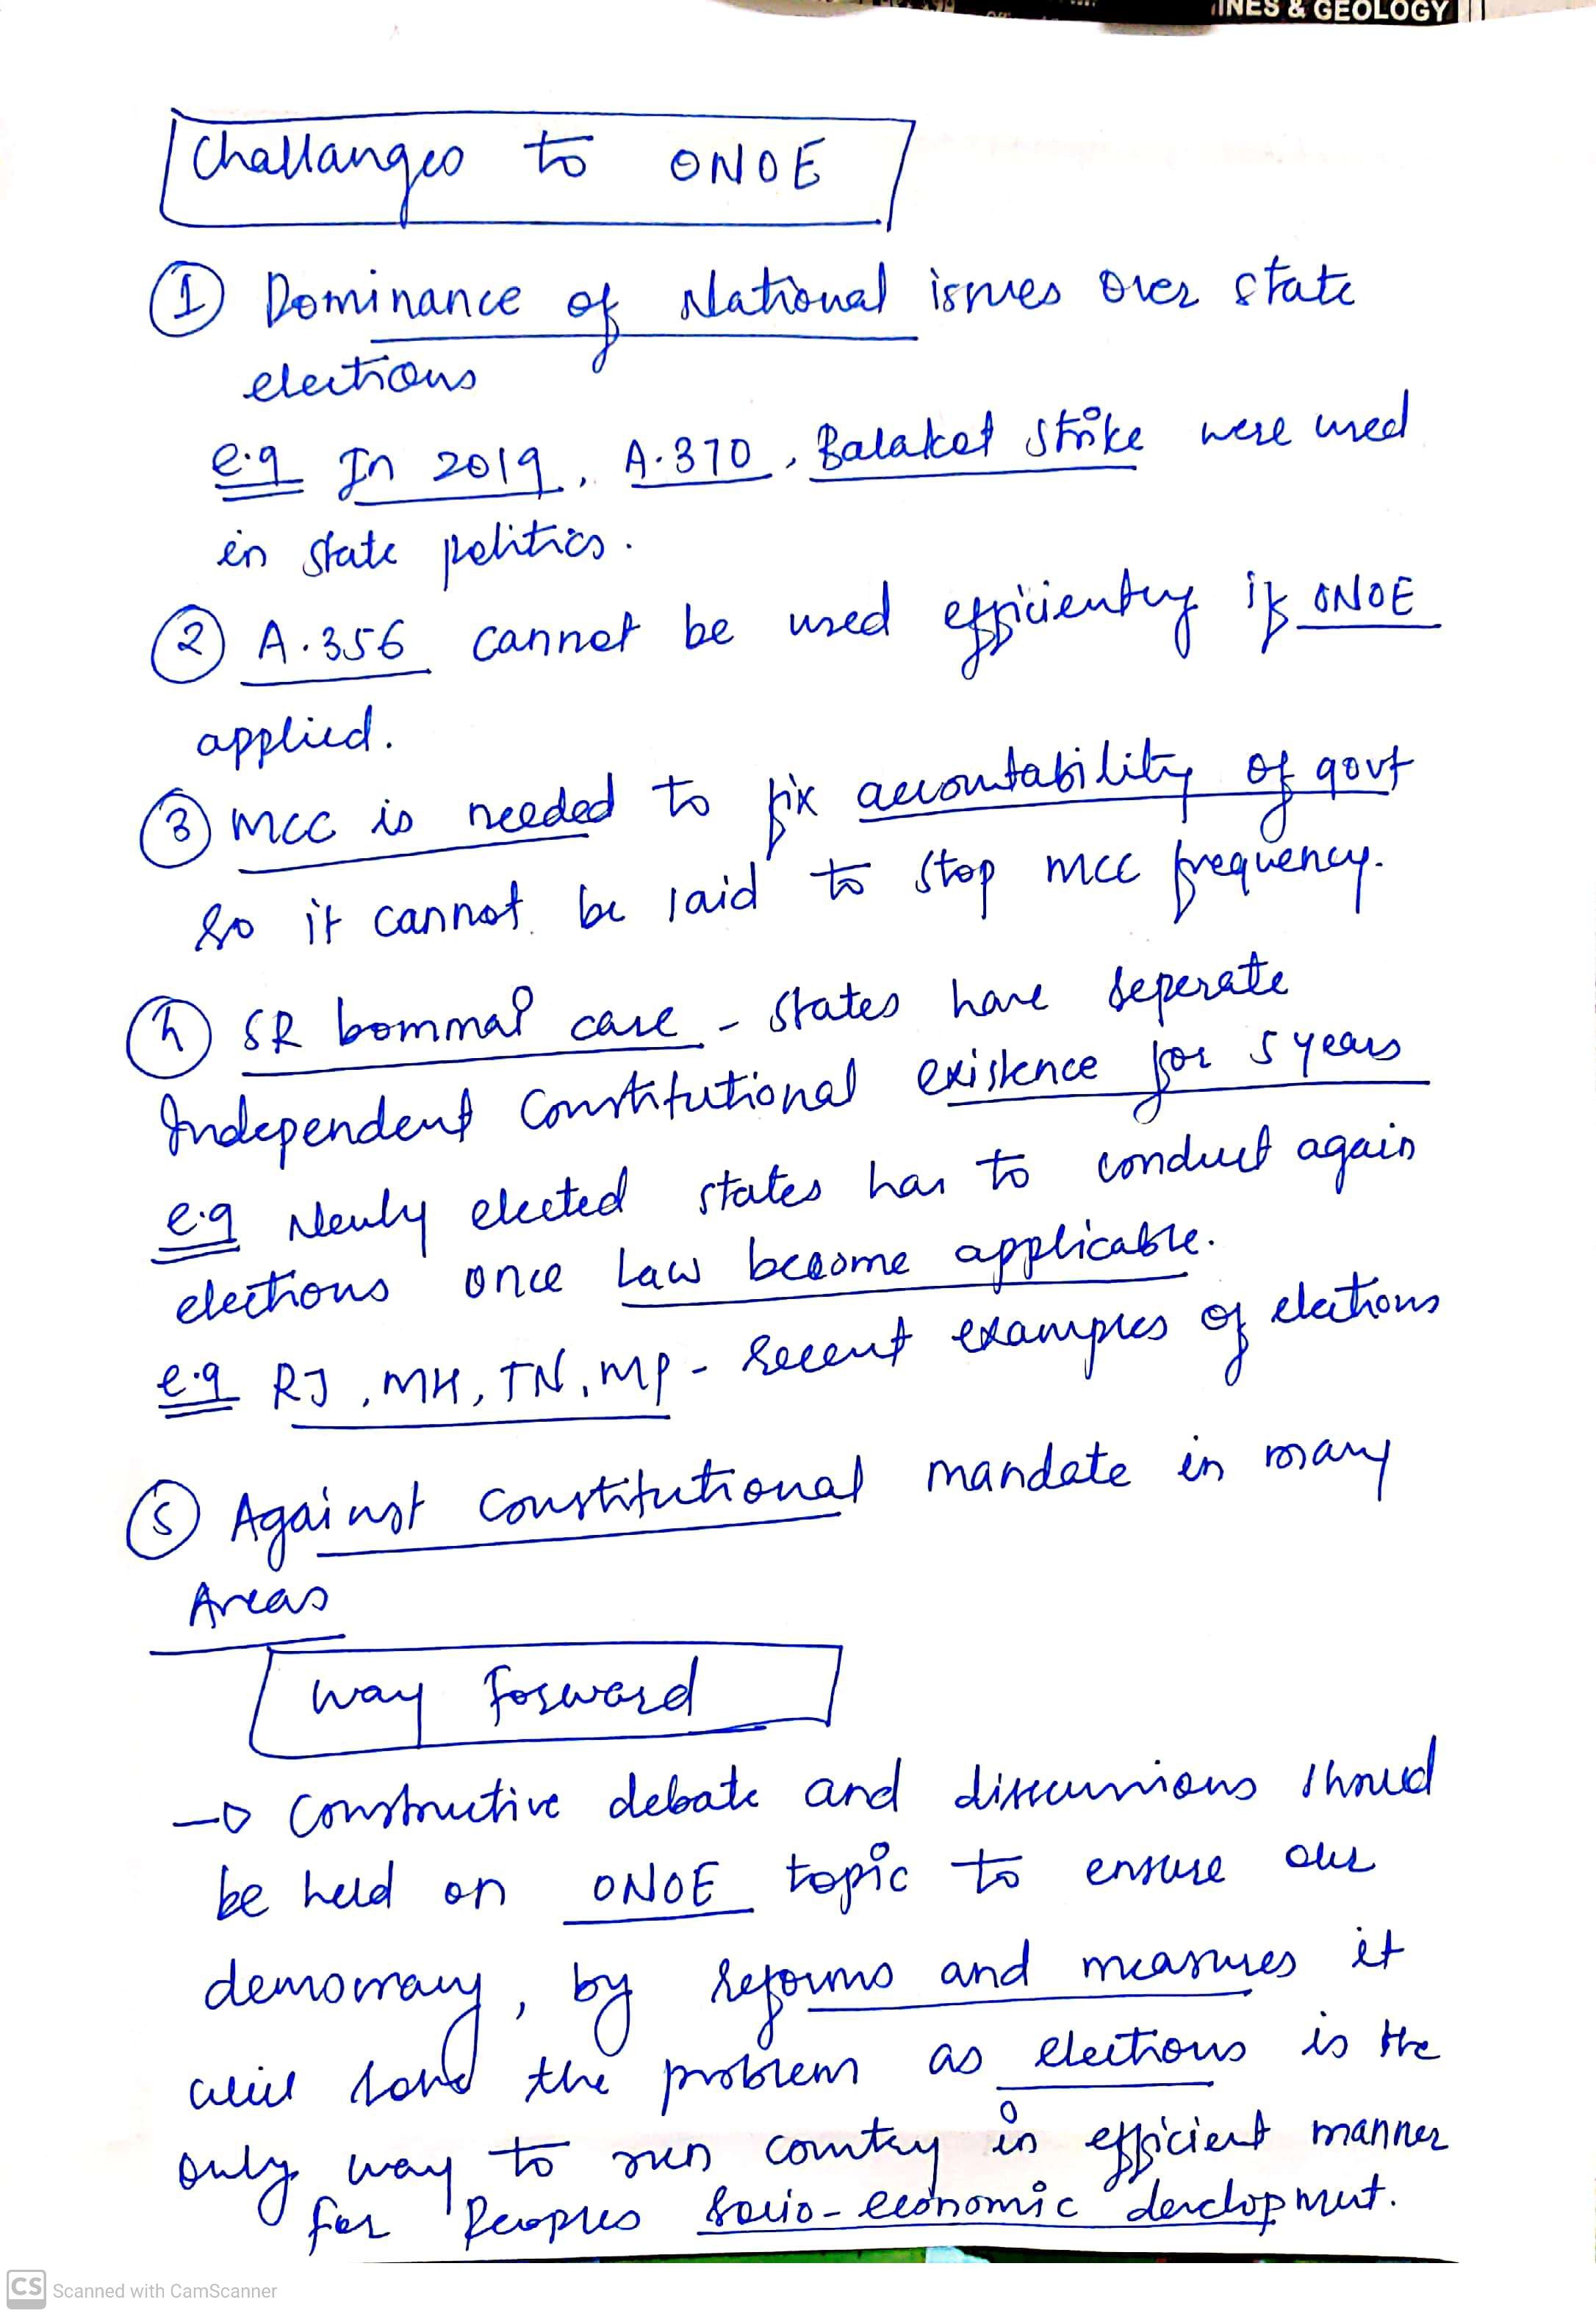 INES & GEOLOGY
Challanges to ONOE
① Dominance of National issues over state
elections
e.g In 2019, A.370, Balakot strike were used
in state politics.
② A.356 cannot be used efficiently if ONOE
applied.
③ MCC is needed to fix accountability of govt
so it cannot be said to stop MCC frequency.
④ SR bommai case - states have seperate
Independent Constitutional existence for 5 years
e.g Newly elected states has to conduct again
elections once Law become applicable.
e.g RJ, MH, TN, MP - Recent examples of elections
⑤ Against Constitutional mandate in many
Areas
Way Forward
→ Constructive debate and discussions should
be held on ONOE topic to ensure our
democracy, by reforms and measures it
will solve the problem as elections is the
only way to run country in efficient manner
for Peoples socio-economic development.
CS Scanned with CamScanner